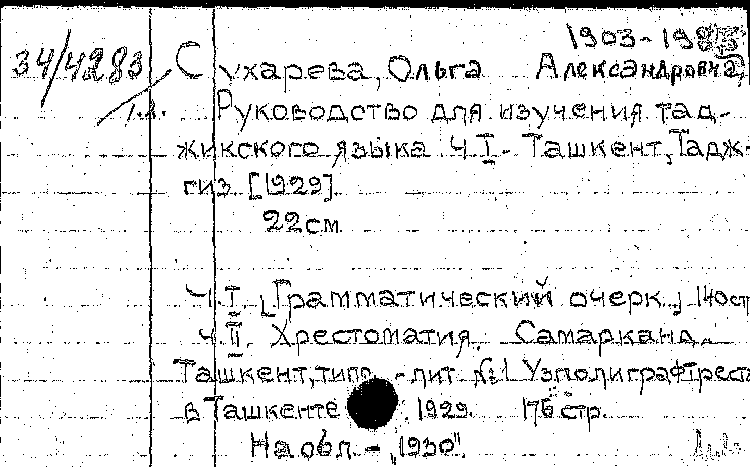 1903-198
34/4283 Сухарева, Ольга Александровна,
1.2. Руководство для изучения тад-
жикского языка Ч. I - Ташкент, Тадж-
гиз [1929].
22 см.
Ч. I. [Грамматический очерк.] 140 стр
Ч. II. Хрестоматия. Самарканд.-
Ташкент, типо.-лит №1 Узполиграфтреста
в Ташкенте 1929. 176 стр.
На обл. - "1930".